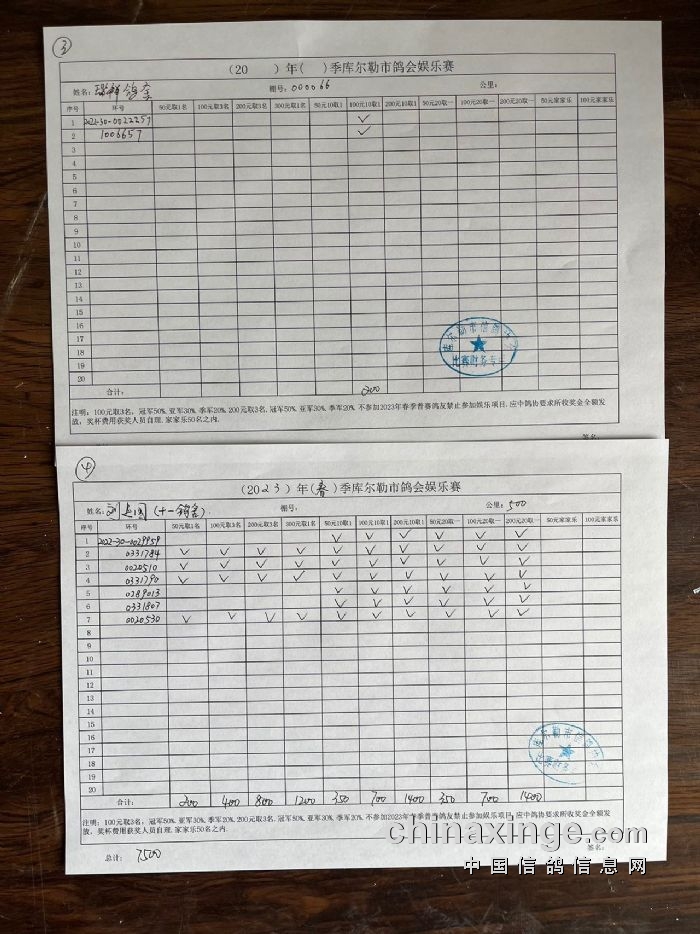 3
(20 )年( )季库尔勒市鸽会娱乐赛
姓名: 鸽舍 棚号: 000066 公里:
序号 环号 50元取1名 100元取3名 200元取3名 300元取1名 50元10取1 100元10取1 200元10取1 50元20取一 100元20取一 200元20取一 50元家家乐 100元家家乐
1 2022-30-0022257 ✓
2 1006657 ✓
3
4
5
6
7
8
9
10
11
12
13
14
15
16
17
18
19
20
合计: 200
注明:100元取3名, 冠军50%, 亚军30%, 季军20%, 200元取3名, 冠军50%, 亚军30%, 季军20%, 不参加2023年春季普赛鸽友禁止参加娱乐项目, 应中鸽协要求所收奖金全额发
放, 奖杯费用获奖人员自理, 家家乐50名之内.
签名:
库尔勒市信鸽协会
比赛财务专
4
(2023)年(春)季库尔勒市鸽会娱乐赛
姓名: 刘 (十一鸽舍) 棚号: 公里: 500
序号 环号 50元取1名 100元取3名 200元取3名 300元取1名 50元10取1 100元10取1 200元10取1 50元20取一 100元20取一 200元20取一 50元家家乐 100元家家乐
1 2022-30-0029959 ✓ ✓ ✓ ✓ ✓ ✓
2 0331784 ✓ ✓ ✓ ✓ ✓ ✓ ✓ ✓ ✓ ✓
3 0020510 ✓ ✓ ✓ ✓ ✓ ✓ ✓ ✓ ✓ ✓
4 0331790 ✓ ✓ ✓ ✓ ✓ ✓ ✓ ✓ ✓ ✓
5 0289013 ✓ ✓ ✓ ✓ ✓ ✓
6 0331807 ✓ ✓ ✓ ✓ ✓ ✓
7 0020530 ✓ ✓ ✓ ✓ ✓ ✓ ✓ ✓ ✓ ✓
8
9
10
11
12
13
14
15
16
17
18
19
20
合计: 200 400 800 1200 350 700 1400 350 700 1400
注明:100元取3名, 冠军50%, 亚军30%, 季军20%, 200元取3名, 冠军50%, 亚军30%, 季军20%, 不参加2023年春季普赛鸽友禁止参加娱乐项目, 应中鸽协要求所收奖金全额发
放, 奖杯费用获奖人员自理, 家家乐50名之内.
总计: 7500 签名:
chinaxinge.com
中国信鸽信息网